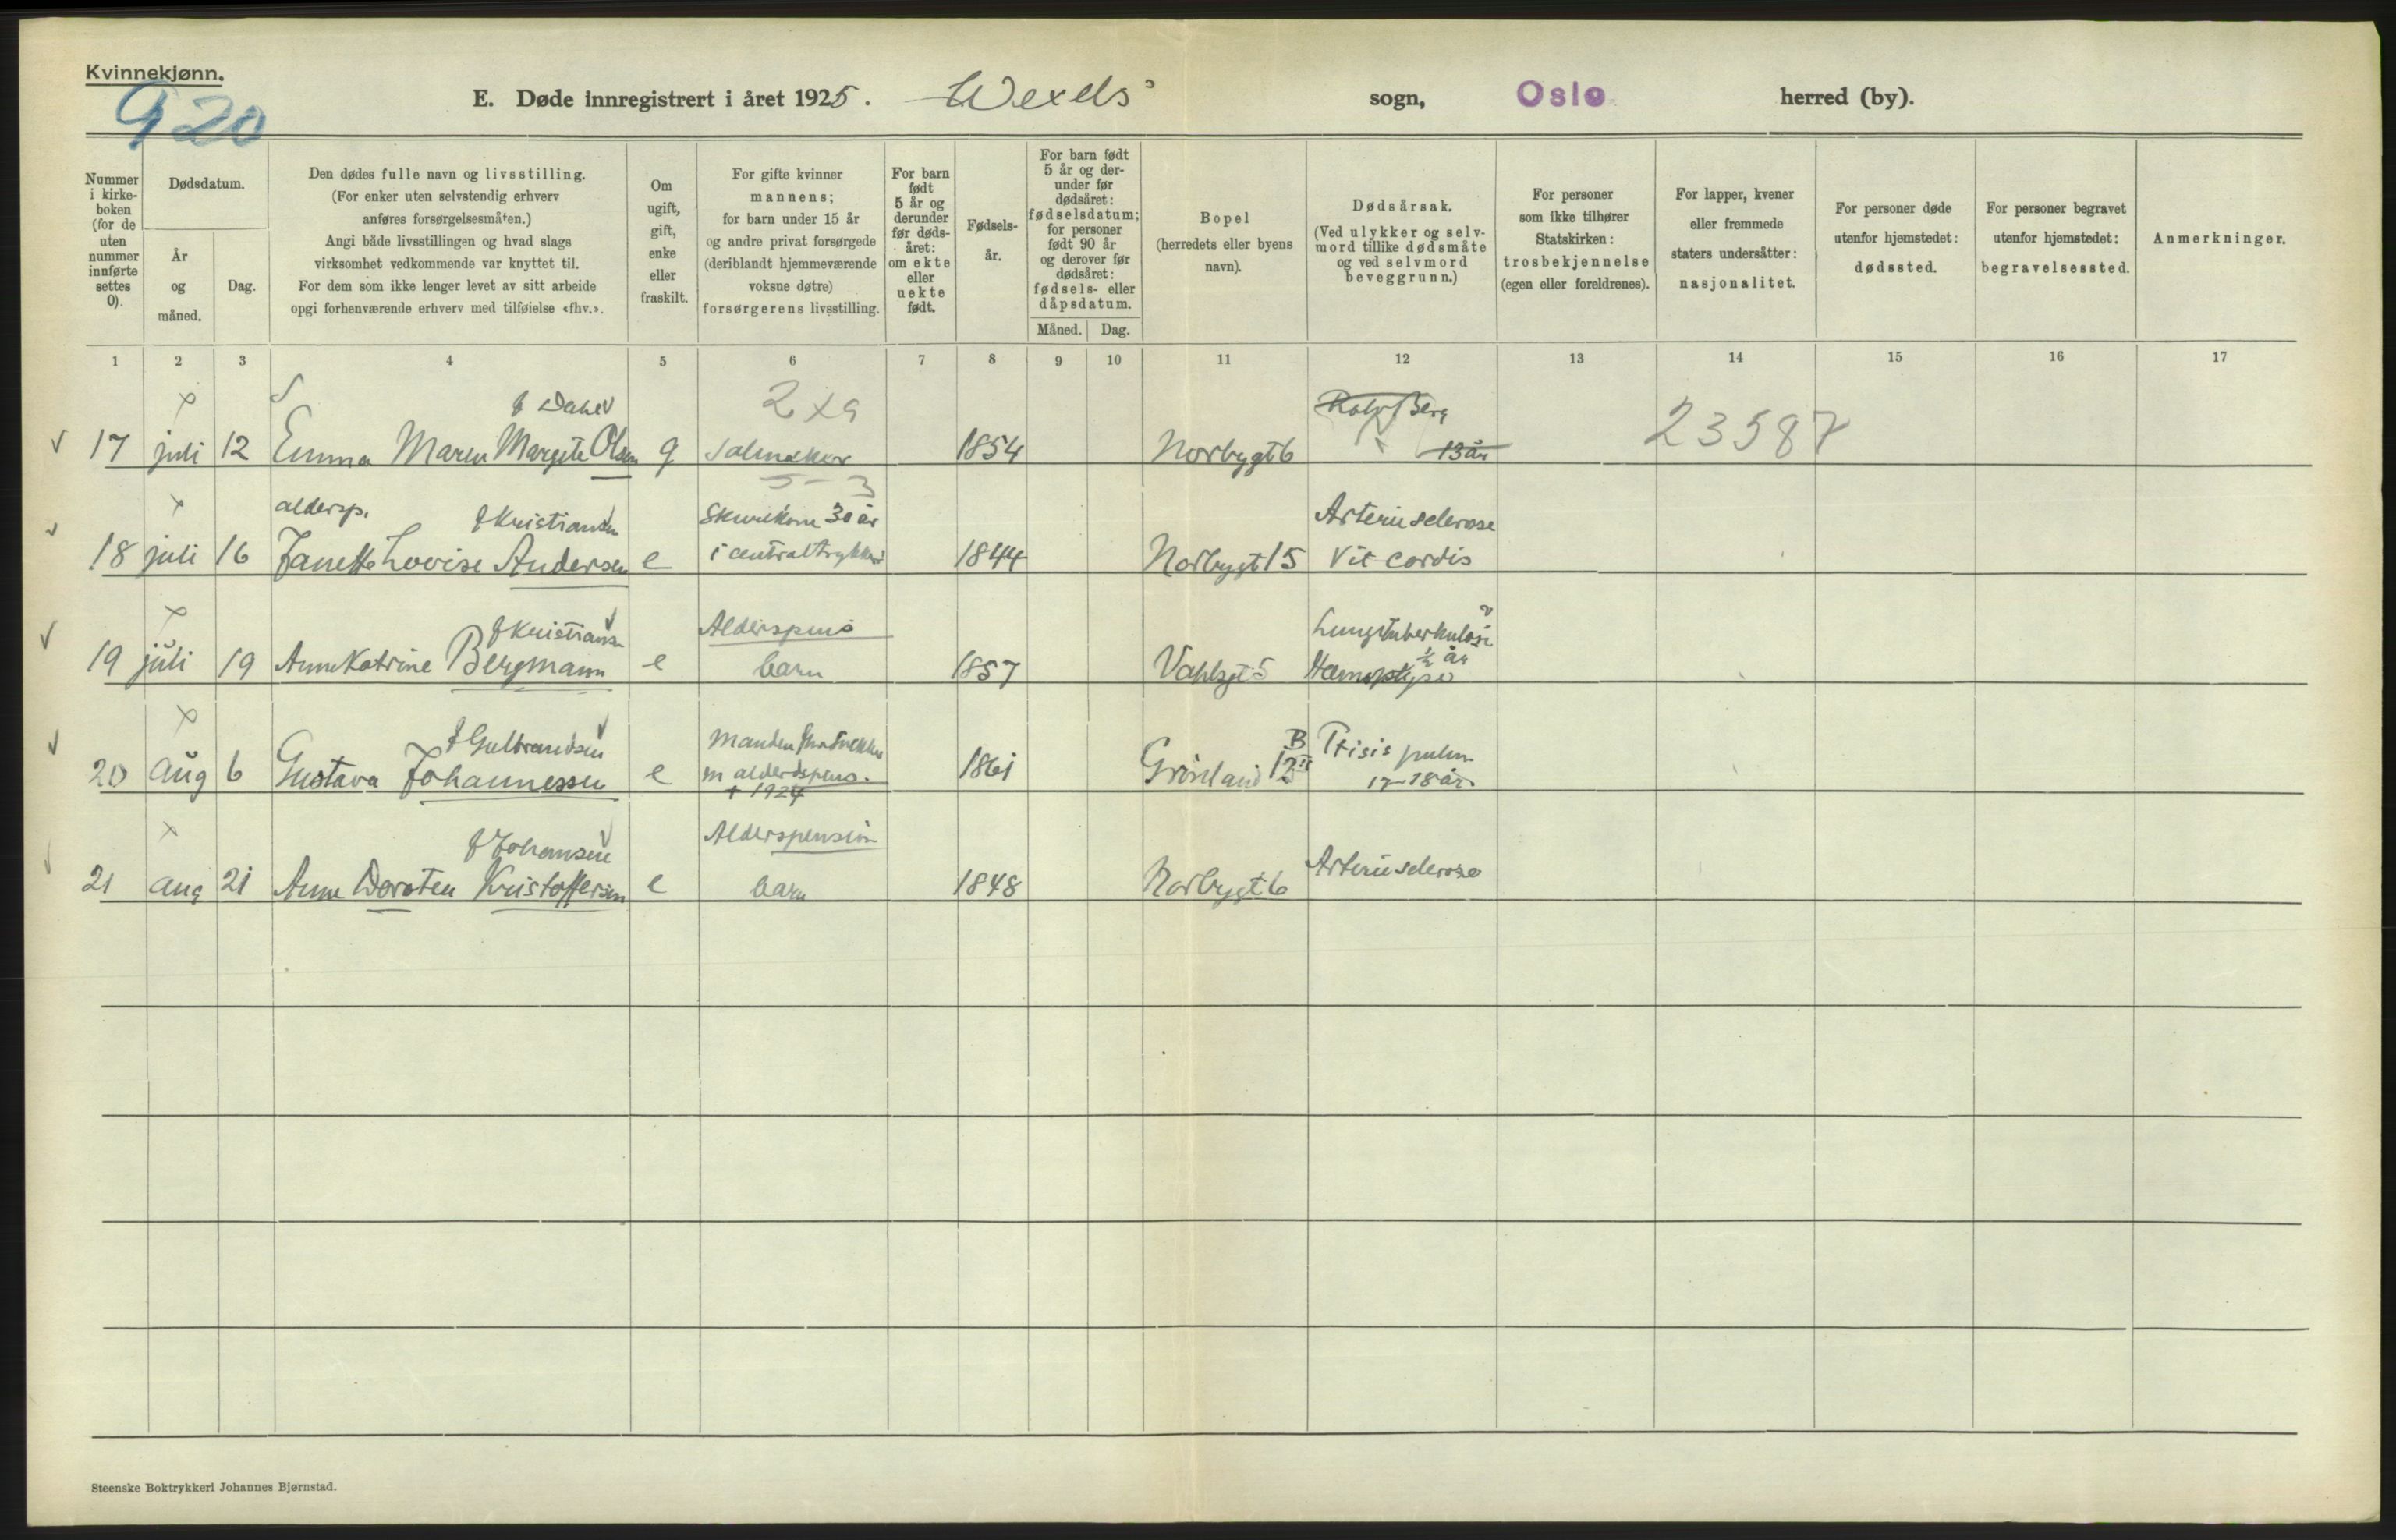 Kvinnekjønn.
920
E. Døde innregistrert i året 1925. Wexels sogn, Oslo herred (by).
Nummer i kirke-boken (for de uten nummer innførte settes 0).
Dødsdatum.
År og måned.
Dag.
Den dødes fulle navn og livsstilling.
(For enker uten selvstendig erhverv
anføres forsørgelsesmåten.)
Angi både livsstillingen og hvad slags
virksomhet vedkommende var knyttet til.
For dem som ikke lenger levet av sitt arbeide
opgi forhenværende erhverv med tilføielse «fhv.».
Om ugift, gift, enke eller fraskilt.
For gifte kvinner
mannens;
for barn under 15 år
og andre privat forsørgede
(deriblandt hjemmeværende
voksne døtre)
forsørgerens livsstilling.
For barn født 5 år og derunder før døds-året: om ekte eller uekte født.
Fødsels-år.
For barn født 5 år og der-under før dødsåret: fødselsdatum; for personer født 90 år og derover før dødsåret: fødsels- eller dåpsdatum.
Måned. Dag.
Bopel
(herredets eller byens
navn).
Dødsårsak.
(Ved ulykker og selv-
mord tillike dødsmåte
og ved selvmord
beveggrunn.)
For personer
som ikke tilhører
Statskirken:
trosbekjennelse
(egen eller foreldrenes).
For lapper, kvener
eller fremmede
staters undersåtter:
nasjonalitet.
For personer døde
utenfor hjemstedet:
dødssted.
For personer begravet
utenfor hjemstedet:
begravelsessted.
Anmerkninger.
1 2 3 4 5 6 7 8 9 10 11 12 13 14 15 16 17
2 x 9
17 juli 12 Emma Maren Margite Olsen g Salmaker 1854 Norbygt 6 13 år 23587
aldersp. f Kristiansen Skurekone 30 år Arteriesclerose
18 juli 16 Janette Lovise Andersen e i centraltrykkeri 1844 Norbygt 15 Vit cordis
f Kristians Alderspens Lungetuberkulose
19 juli 19 Anne Katrine Bergmann e barn 1857 Vahlsgt 5 Hæmoptyse ½ år
f Gulbrandsen Manden B Ptisis pulm
20 aug 6 Gustava Johannessen e m alderdspens. 1861 Grønland 12 II 17-18 år
+ 1924
f Johansen Alderspension
21 aug 21 Anne Doroten Kristoffersen e barn 1848 Norbygt 6 Arteriesclerose
Steenske Boktrykkeri Johannes Bjørnstad.